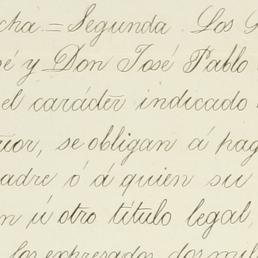 cha = Segunda. Los
é y Don José Pablo
el carácter indicado
rior, se obligan á pag
adre ó á quien su
n ú otro título legal,
los expresados dos mil